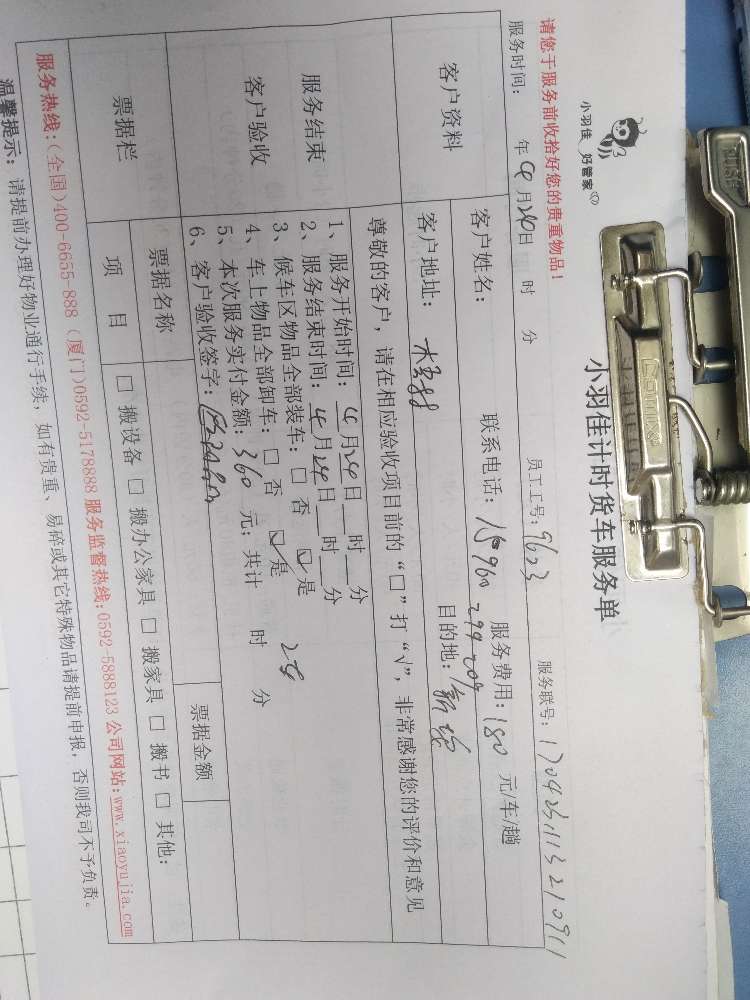 小羽佳 好管家
小羽佳计时货车服务单
请您于服务前收拾好您的贵重物品！
服务时间： 年4月24日 时 分 员工工号：9623 服务联号：
客户资料
客户姓名： 联系电话： 服务费用：180 元/车/趟
客户地址： 目的地：
尊敬的客户，请在相应验收项目前的“□”打“√”，非常感谢您的评价和意见
服务结束
客户验收
1、服务开始时间：4月24日__时__分
2、服务结束时间：4月24日__时__分
3、候车区物品全部装车：□ 否 ☑ 是
4、车上物品全部卸车：□ 否 ☑ 是
5、本次服务实付金额：360 元；共计 时 分
6、客户验收签字：
票据栏 票据名称 票据金额
项 目 □ 搬设备 □ 搬办公家具 □ 搬家具 □ 搬书 □ 其他：
服务热线：(全国)400-6655-888 (厦门)0592-5178888 服务监督热线：0592-5888123 公司网站：www.xiaoyujia.com
温馨提示：请提前办理好物业通行手续，如有贵重、易碎或其它特殊物品请提前申报，否则我司不予负责。